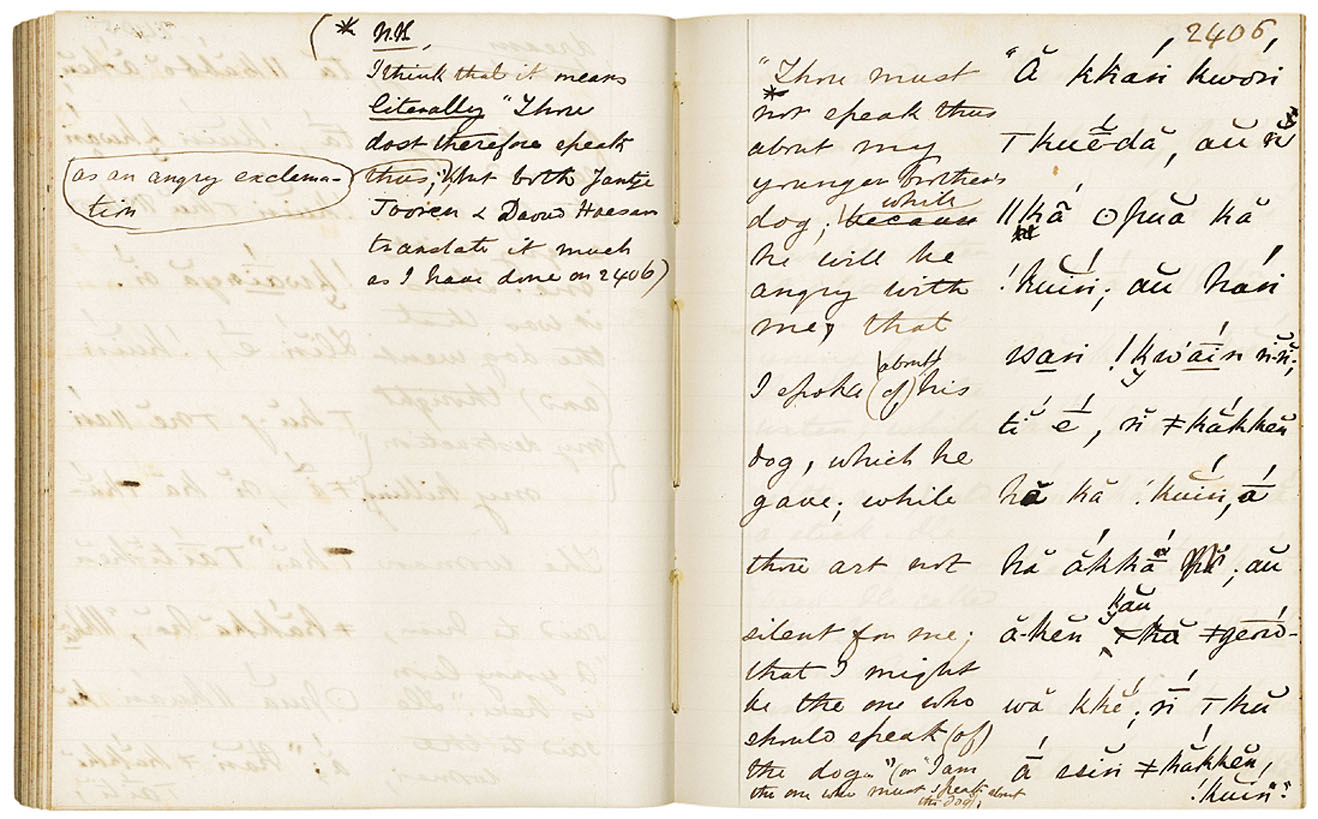 (* N.B.
I think that it means
literally "Thou
dost therefore speak
thus;" but both Jantje
Tooren & David Hoesar
translate it much
as I have done on 2406)
as an angry exclama-
tion
2406
"Thou must
* not speak thus
about my
younger brother's
dog; because while
he will be
angry with
me, that
I spoke (of) about his
dog, which he
gave; while
thou art not
silent for me;
that I might
be the one who
should speak (of)
the dog." (or "I am
the one who must speak about
the dog)
"Ă kkán kwọn
ǀkuē̆dă, aŭ ň
ǁkâ ʘpuă kă
!kuĭń; aŭ hań
ssan !kwaíń ň-ň;
tĭ é, ň ǂkắkkeň
hă kă !kuĭń, ā́
hă ắkkā́; aŭ
ă-kĕń kaŭ ǂgoú-
wă khĕ; ń ǀkŭ
ā́ ssiń ǂkắkkĕn,
!kuiń".